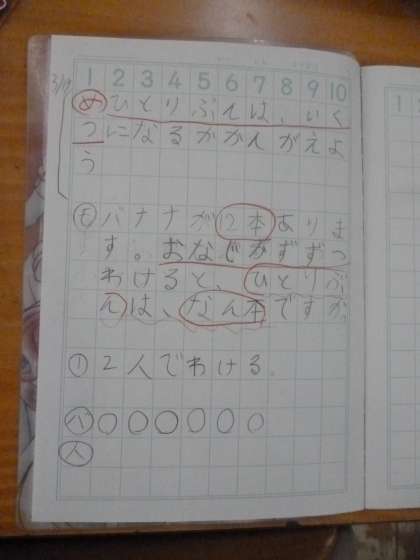 1 2 3 4 5 6 7 8 9 10
めひとりぶんは、いく
つになるかかんがえよ
う
もバナナが12本ありま
す。おなじかずずつ
わけると、ひとりぶ
んは、なん本ですか。
① 2人でわける。
バ〇〇〇〇〇〇
人
1